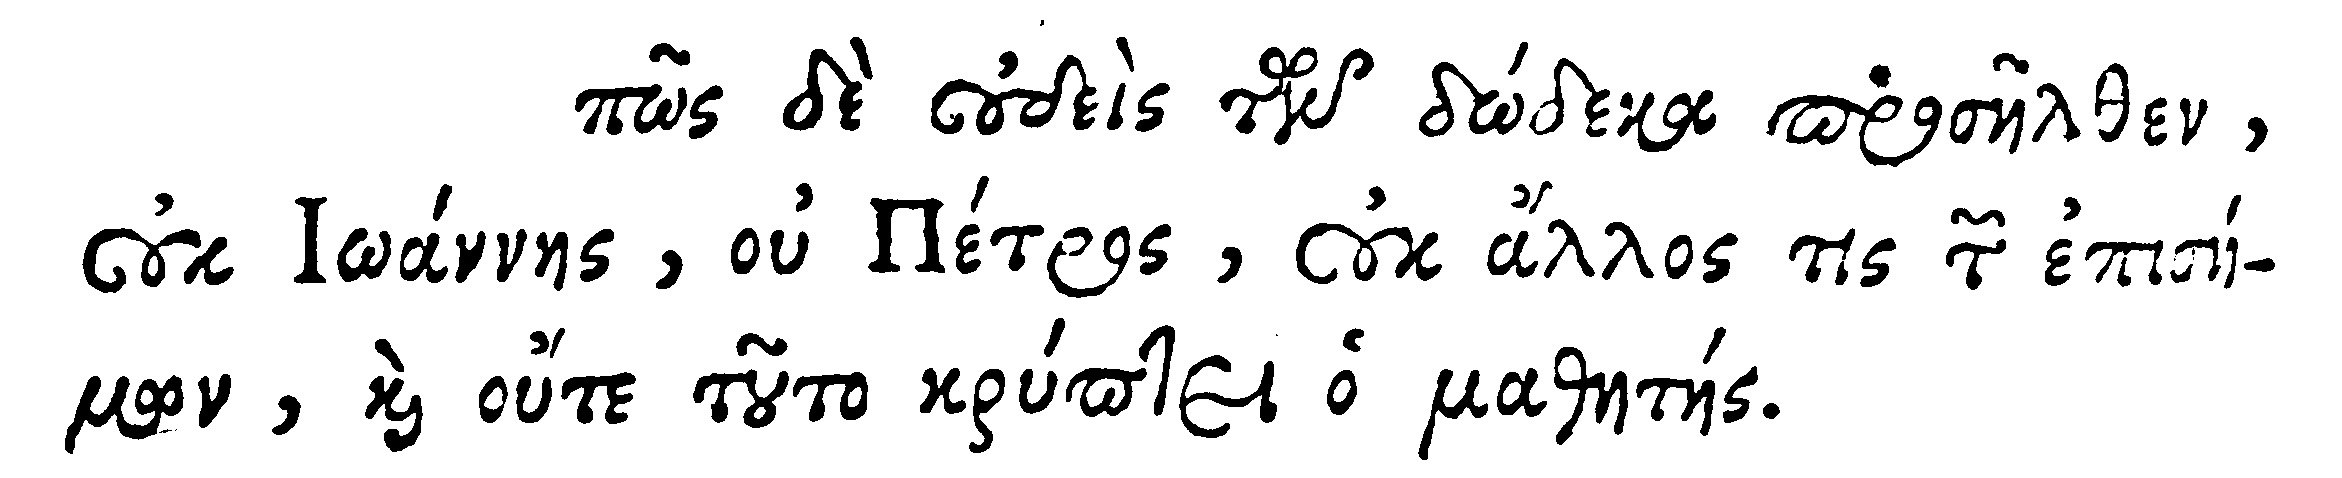 πῶς δὲ οὐδεὶς τῶν δώδεκα προσῆλθεν,
οὐκ Ἰωάννης, οὐ Πέτρος, οὐκ ἄλλος τις τῶν ἐπισή-
μων, καὶ οὔτε τοῦτο κρύπτει ὁ μαθητής.